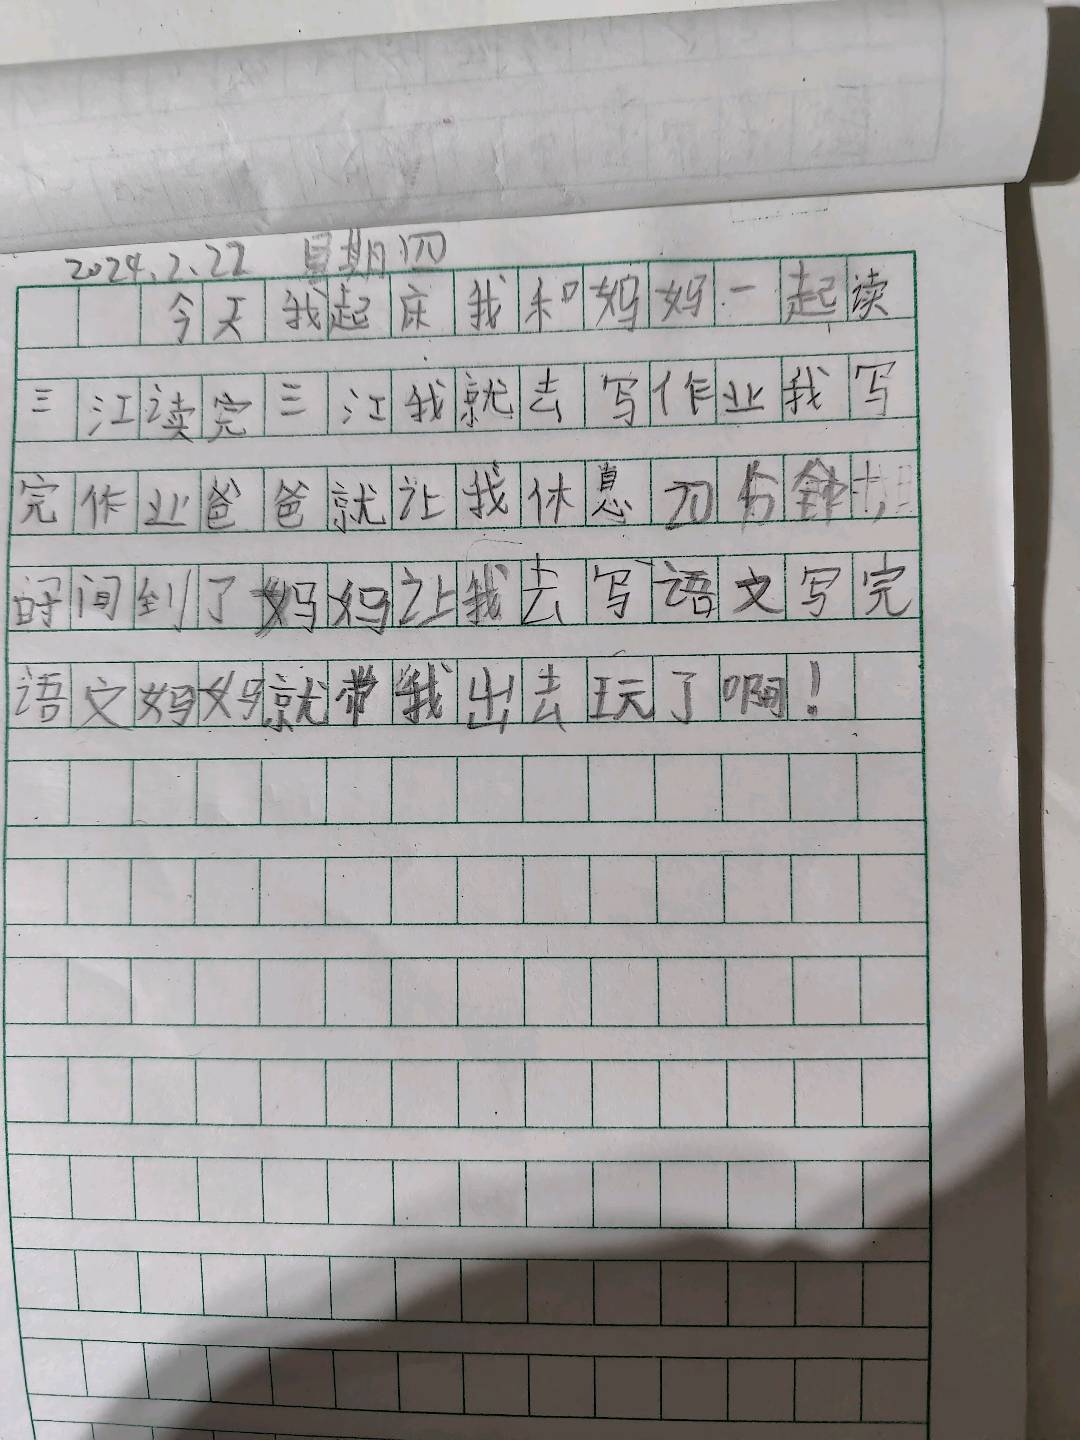 2024.2.22 星期四
今天我起床我和妈妈一起读
三江读完三江我就去写作业我写
完作业爸爸就让我休息20分钟
时间到了妈妈让我去写语文写完
语文妈妈就带我出去玩了啊！